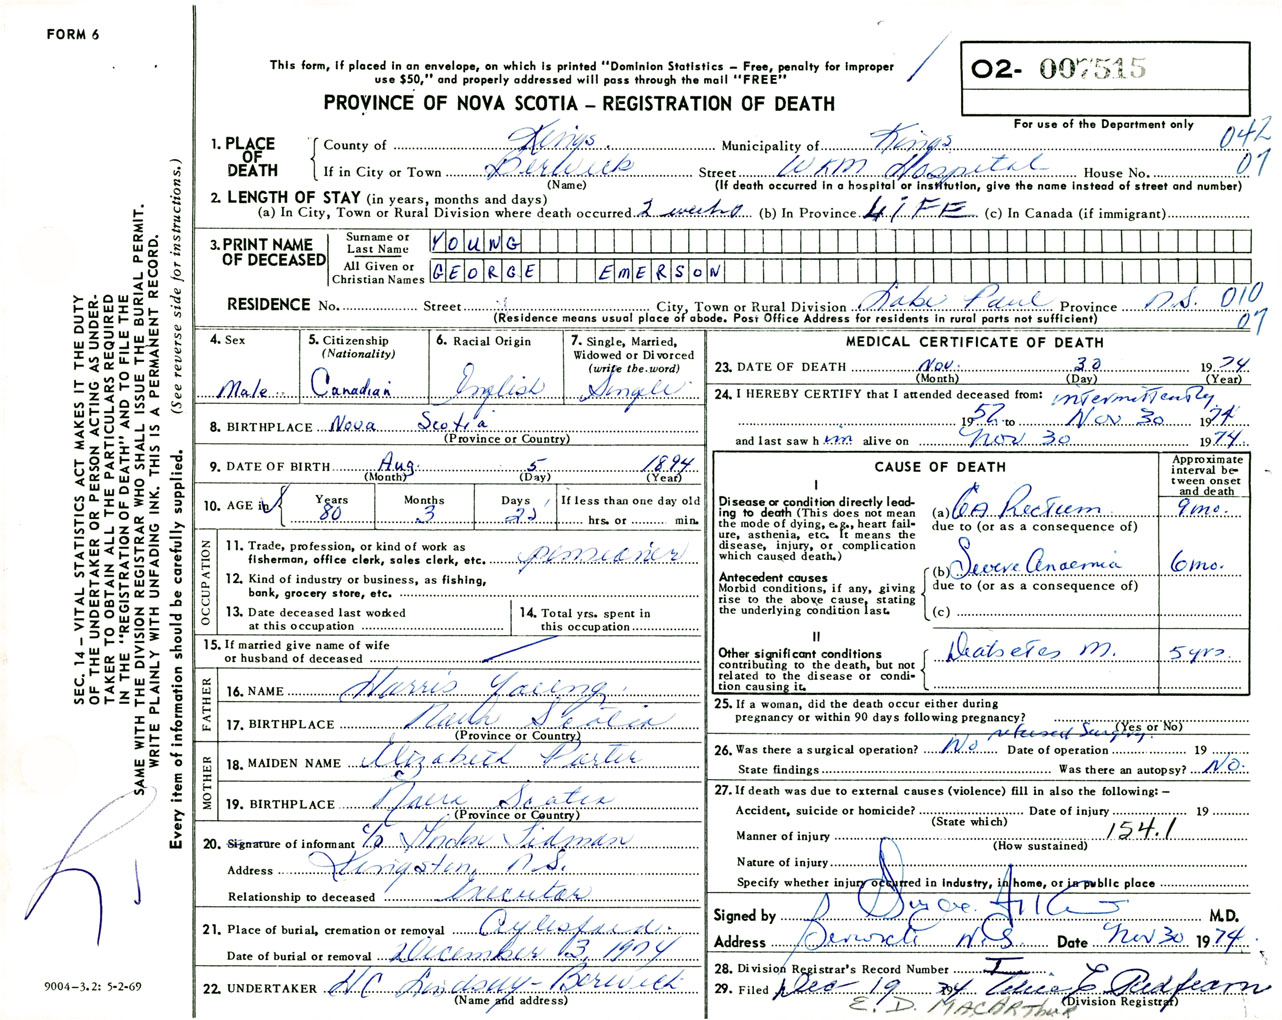 FORM 6
This form, if placed in an envelope, on which is printed "Dominion Statistics – Free, penalty for improper
use $50," and properly addressed will pass through the mail "FREE"
PROVINCE OF NOVA SCOTIA – REGISTRATION OF DEATH
O2- 007515
For use of the Department only
042
07
1. PLACE OF DEATH
County of Kings Municipality of Kings
If in City or Town Berwick Street WKM Hospital House No.
(Name) (If death occurred in a hospital or institution, give the name instead of street and number)
2. LENGTH OF STAY (in years, months and days)
(a) In City, Town or Rural Division where death occurred 2 weeks (b) In Province LIFE (c) In Canada (if immigrant)
3. PRINT NAME OF DECEASED
Surname or Last Name YOUNG
All Given or Christian Names GEORGE EMERSON
RESIDENCE No. Street City, Town or Rural Division Lake Paul Province N.S. 010
(Residence means usual place of abode. Post Office Address for residents in rural parts not sufficient) 07
4. Sex
Male
5. Citizenship
(Nationality)
Canadian
6. Racial Origin
English
7. Single, Married,
Widowed or Divorced
(write the word)
Single
8. BIRTHPLACE Nova Scotia
(Province or Country)
9. DATE OF BIRTH Aug. 5 1894
(Month) (Day) (Year)
10. AGE in Years Months Days If less than one day old
80 3 hrs. or min.
OCCUPATION
11. Trade, profession, or kind of work as
fisherman, office clerk, sales clerk, etc. pensioner
12. Kind of industry or business, as fishing,
bank, grocery store, etc.
13. Date deceased last worked
at this occupation
14. Total yrs. spent in
this occupation
15. If married give name of wife
or husband of deceased
FATHER
16. NAME Harris Young
17. BIRTHPLACE Nova Scotia
(Province or Country)
MOTHER
18. MAIDEN NAME Elizabeth Porter
19. BIRTHPLACE Nova Scotia
(Province or Country)
20. Signature of informant c/o Gordon Tidman
Address Kingston, N.S.
Relationship to deceased Executor
21. Place of burial, cremation or removal Aylesford
Date of burial or removal December 3, 1974
22. UNDERTAKER H.C. Lindsay - Berwick
(Name and address)
MEDICAL CERTIFICATE OF DEATH
23. DATE OF DEATH Nov. 30 1974
(Month) (Day) (Year)
24. I HEREBY CERTIFY that I attended deceased from: intermittently
1952 to Nov 30 1974
and last saw him alive on Nov 30 1974
CAUSE OF DEATH
Approximate
interval be-
tween onset
and death
I
Disease or condition directly lead-
ing to death (This does not mean
the mode of dying, e.g., heart fail-
ure, asthenia, etc. It means the
disease, injury, or complication
which caused death.)
(a) CA Rectum 9 mo.
due to (or as a consequence of)
Antecedent causes
Morbid conditions, if any, giving
rise to the above cause, stating
the underlying condition last.
(b) Severe Anaemia 6 mo.
due to (or as a consequence of)
(c)
II
Other significant conditions
contributing to the death, but not
related to the disease or condi-
tion causing it.
Diabetes M. 5 yrs.
25. If a woman, did the death occur either during
pregnancy or within 90 days following pregnancy?
(Yes or No)
refused Surgery
26. Was there a surgical operation? No Date of operation 19
State findings Was there an autopsy? No.
27. If death was due to external causes (violence) fill in also the following: –
Accident, suicide or homicide? Date of injury 19
(State which)
Manner of injury 154.1
(How sustained)
Nature of injury
Specify whether injury occurred in industry, in home, or in public place
Signed by M.D.
Address Berwick N.S. Date Nov 30 1974
28. Division Registrar's Record Number
29. Filed Dec 19 74 Redfearn
(Division Registrar)
E. D. MACARTHUR
SEC. 14 – VITAL STATISTICS ACT MAKES IT THE DUTY
OF THE UNDERTAKER OR PERSON ACTING AS UNDER-
TAKER TO OBTAIN ALL THE PARTICULARS REQUIRED
IN THE "REGISTRATION OF DEATH" AND TO FILE THE
SAME WITH THE DIVISION REGISTRAR WHO SHALL ISSUE THE BURIAL PERMIT.
WRITE PLAINLY WITH UNFADING INK. THIS IS A PERMANENT RECORD.
Every item of information should be carefully supplied. (See reverse side for instructions.)
9004–3.2: 5-2-69